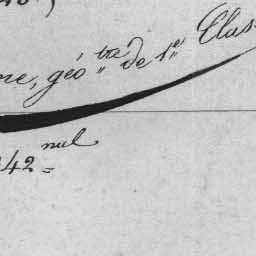 me, géo.tre de 1.re Clas
42 nul